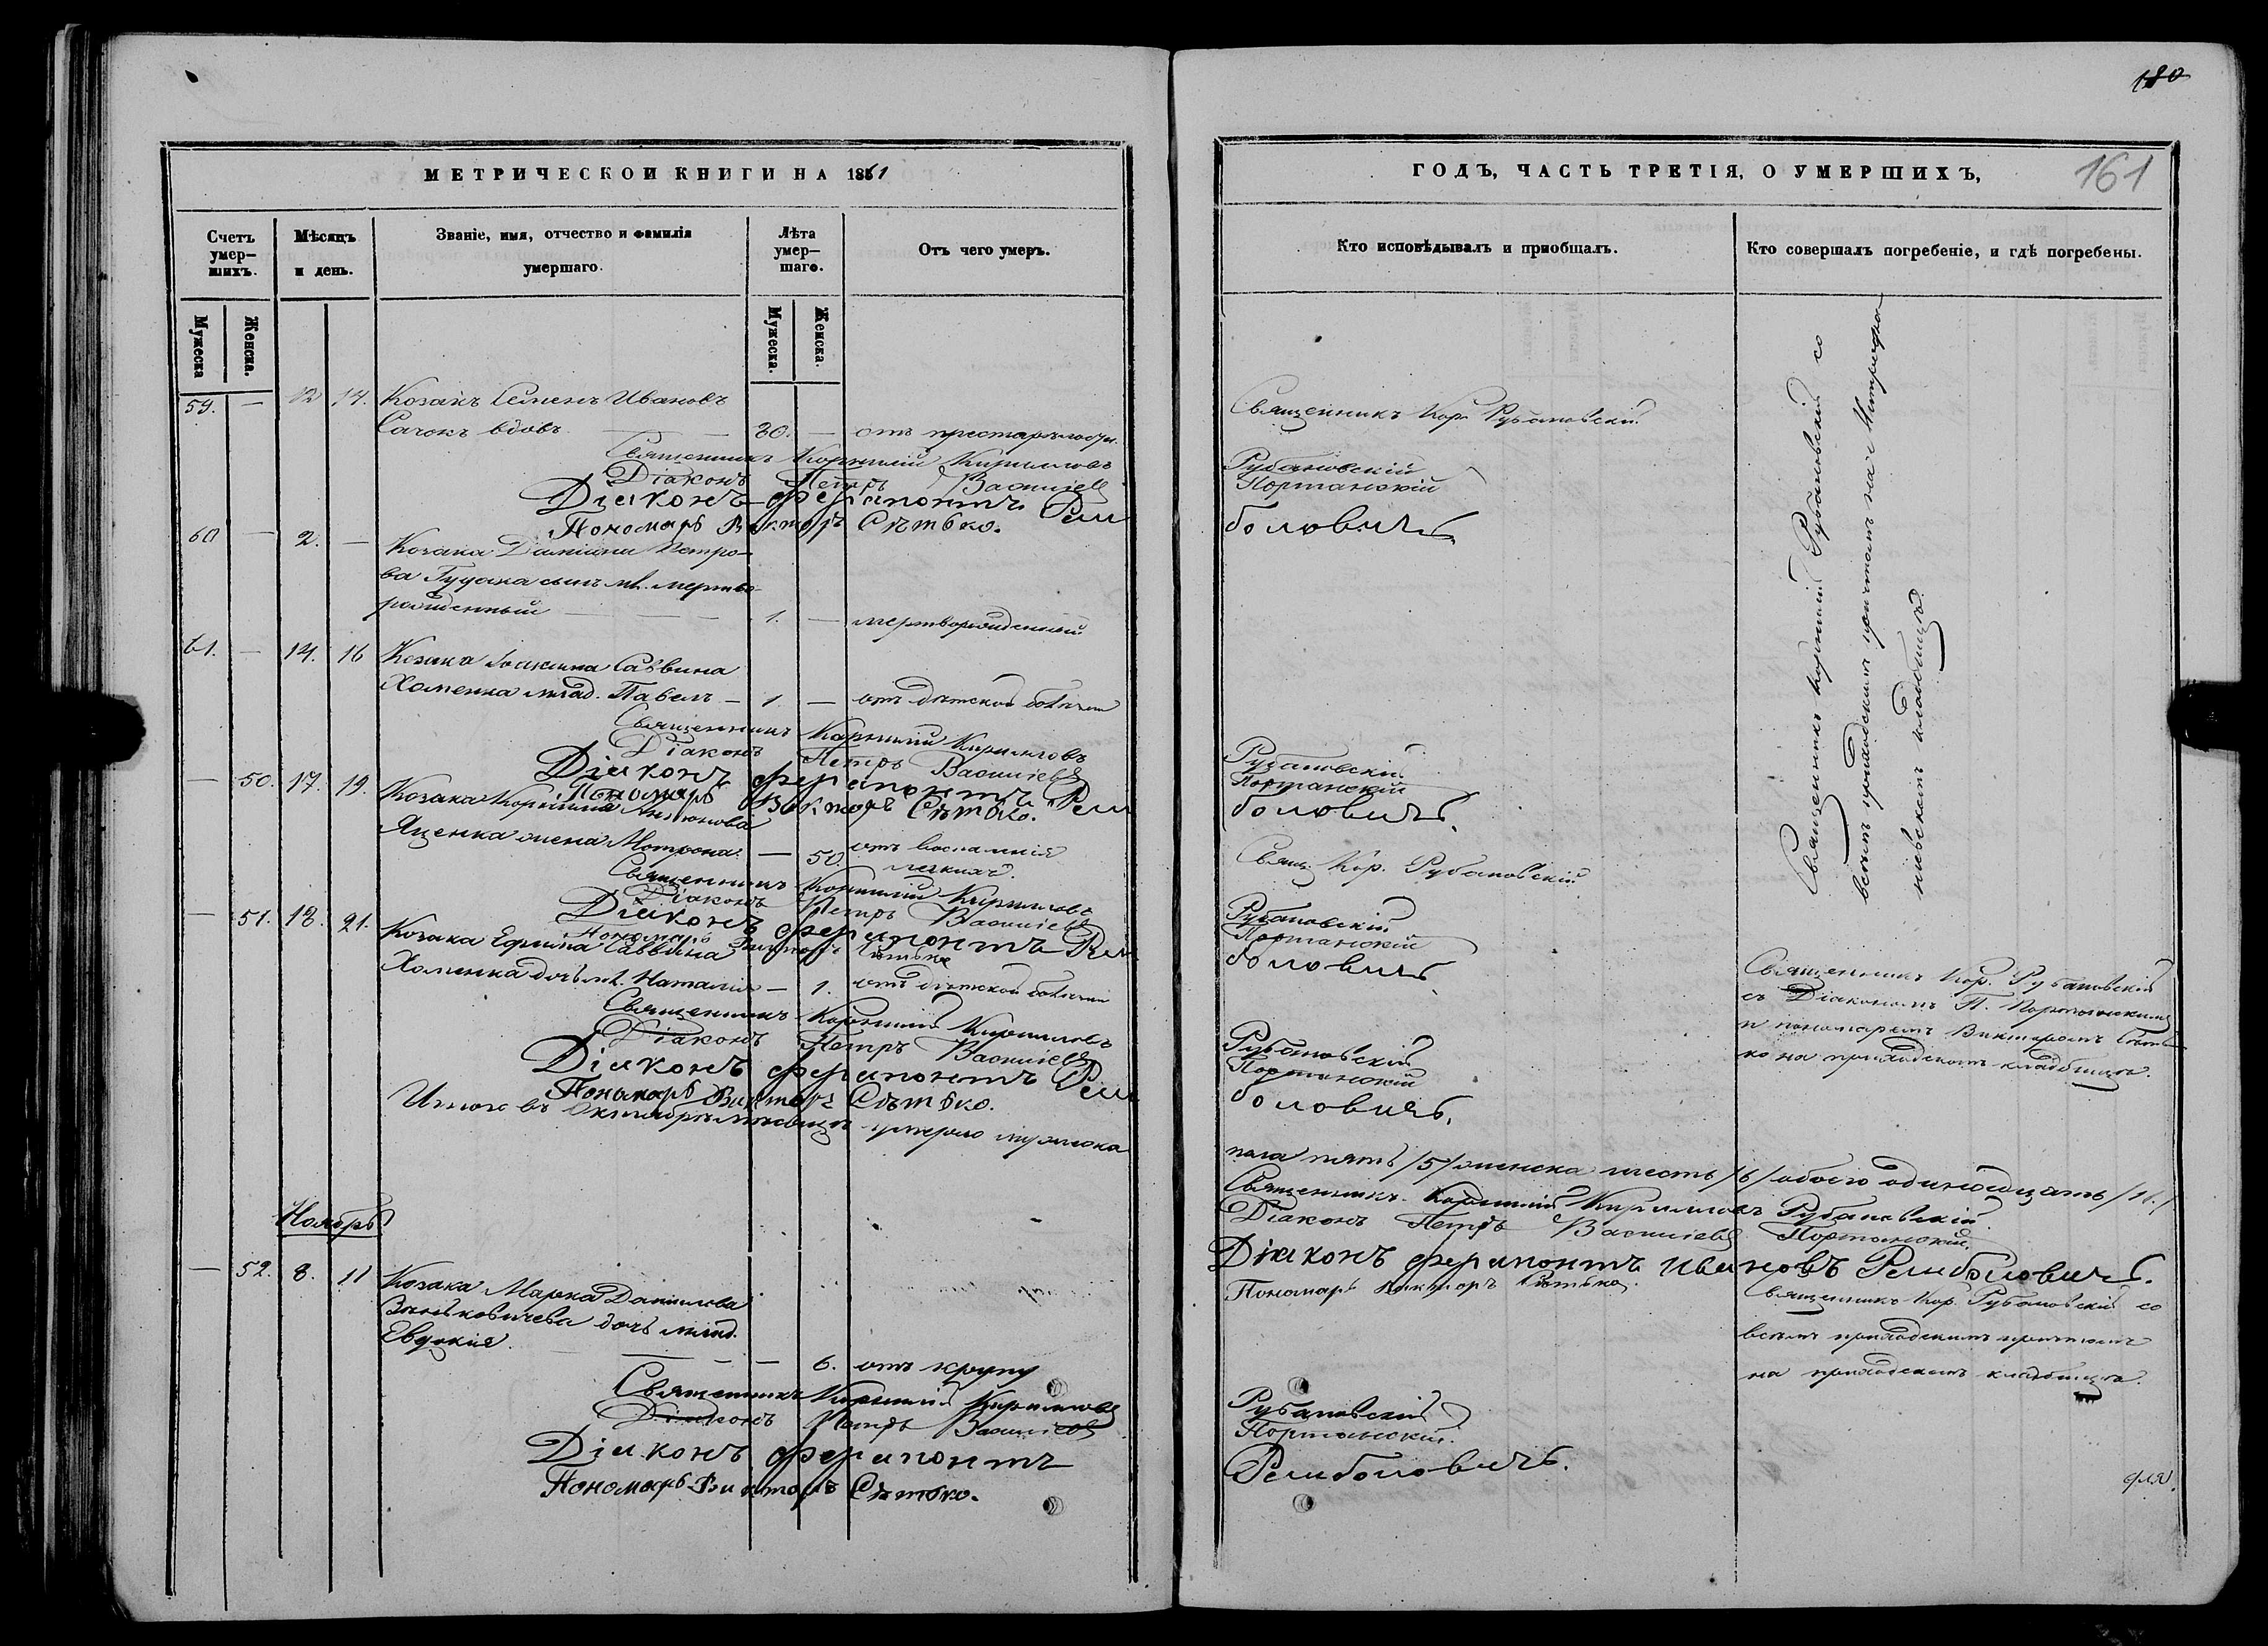 180
МЕТРИЧЕСКОЙ КНИГИ НА 1861
ГОДЪ, ЧАСТЬ ТРЕТІЯ, О УМЕРШИХЪ,
161
Счетъ умер-шихъ.
Мѣсяцъ и день.
Званіе, имя, отчество и фамилія умершаго.
Лѣта умер-шаго.
Отъ чего умеръ.
Кто исповѣдывалъ и пріобщалъ.
Кто совершалъ погребеніе, и гдѣ погребены.
Мужеска
Женска.
Мужеска.
Женска.
59. — 12 14. Козакъ Семенъ Ивановъ
Сачокъ вдовъ — 80. — отъ престарѣлости.
Священникъ Кор. Рубановскій
Священникъ Корнилій Кирилловъ Рубановскій
Діаконъ Петръ Васильевъ Портанскій
Діаконъ Ферапонтъ Ремболовичъ
Пономарь Викторъ Сѣтько.
60 — 2. — Козака Даміана Петро-
ва Гуцака сынъ мл. мертво-
рожденный — 1. — мертворожденный
61. — 14. 16 Козака Іоакима Саввина
Хоменка млад. Павелъ — 1 — отъ дѣтской болѣзни
Священникъ Корнилій Кирилловъ Рубановскій
Діаконъ Петръ Васильевъ Портанскій
Діаконъ Ферапонтъ Ремболовичъ.
Пономарь Викторъ Сѣтько.
Священникъ Корнилій Рубановскій со
всѣмъ приходскимъ причтомъ на
кладбищѣ.
— 50. 17. 19. Козака Корнилія Антонова
Яценка жена Мотрона. — 50. отъ воспаленія
легкихъ.
Свящ. Кор. Рубановскій
Священникъ Корнилій Кирилловъ Рубановскій
Діаконъ Петръ Васильевъ Портанскій
Діаконъ Ферапонтъ Ремболовичъ
Пономарь Викторъ Сѣтько
— 51. 18. 21. Козака Ефима Саввина
Хоменка дочь мл. Наталія — 1. отъ дѣтской болѣзни
Священникъ Кор. Рубановскій
съ Діакономъ П. Портанскимъ
и пономаремъ Викторомъ Сѣть-
ко на приходскомъ кладбищѣ.
Священникъ Корнилій Кирилловъ Рубановскій
Діаконъ Петръ Васильевъ Портанскій
Діаконъ Ферапонтъ Ремболовичъ.
Пономарь Викторъ Сѣтько.
Итого въ Октябрѣ мѣсяцѣ умерло мужеска
пола пять /5/ женска шесть /6/ обоего одинадцать /11./
Священникъ Корнилій Кирилловъ Рубановскій
Діаконъ Петръ Васильевъ Портанскій.
Діаконъ Ферапонтъ Ивановъ Ремболовичъ.
Пономарь Викторъ Сѣтько.
Ноябрь
— 52. 8. 11 Козака Марка Данилова
дочь млад.
Евдокія. — — 6. отъ крупу
Священникъ Кор. Рубановскій со
всѣмъ приходскимъ причтомъ
на приходскомъ кладбищѣ.
Священникъ Корнилій Кирилловъ Рубановскій
Діаконъ Петръ Васильевъ Портанскій.
Діаконъ Ферапонтъ Ремболовичъ.
Пономарь Викторъ Сѣтько.